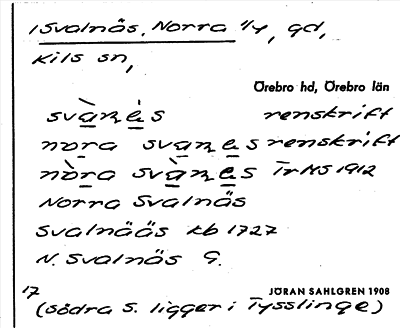 1 Svalnäs, Norra 1/4, gd,
Kils sn,
Örebro hd, Örebro län
svànes renskrift
nora svanes renskrift
nòra svànes Tr NS 1912
Norra Svalnäs
Svalnääs kb 1727
N. Svalnäs G.
JÖRAN SAHLGREN 1908
17
(södra S. ligger i Tysslinge)